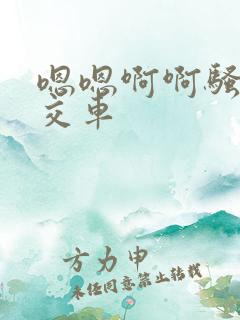 嗯嗯啊啊骚
交车
方力申
未经同意禁止转载